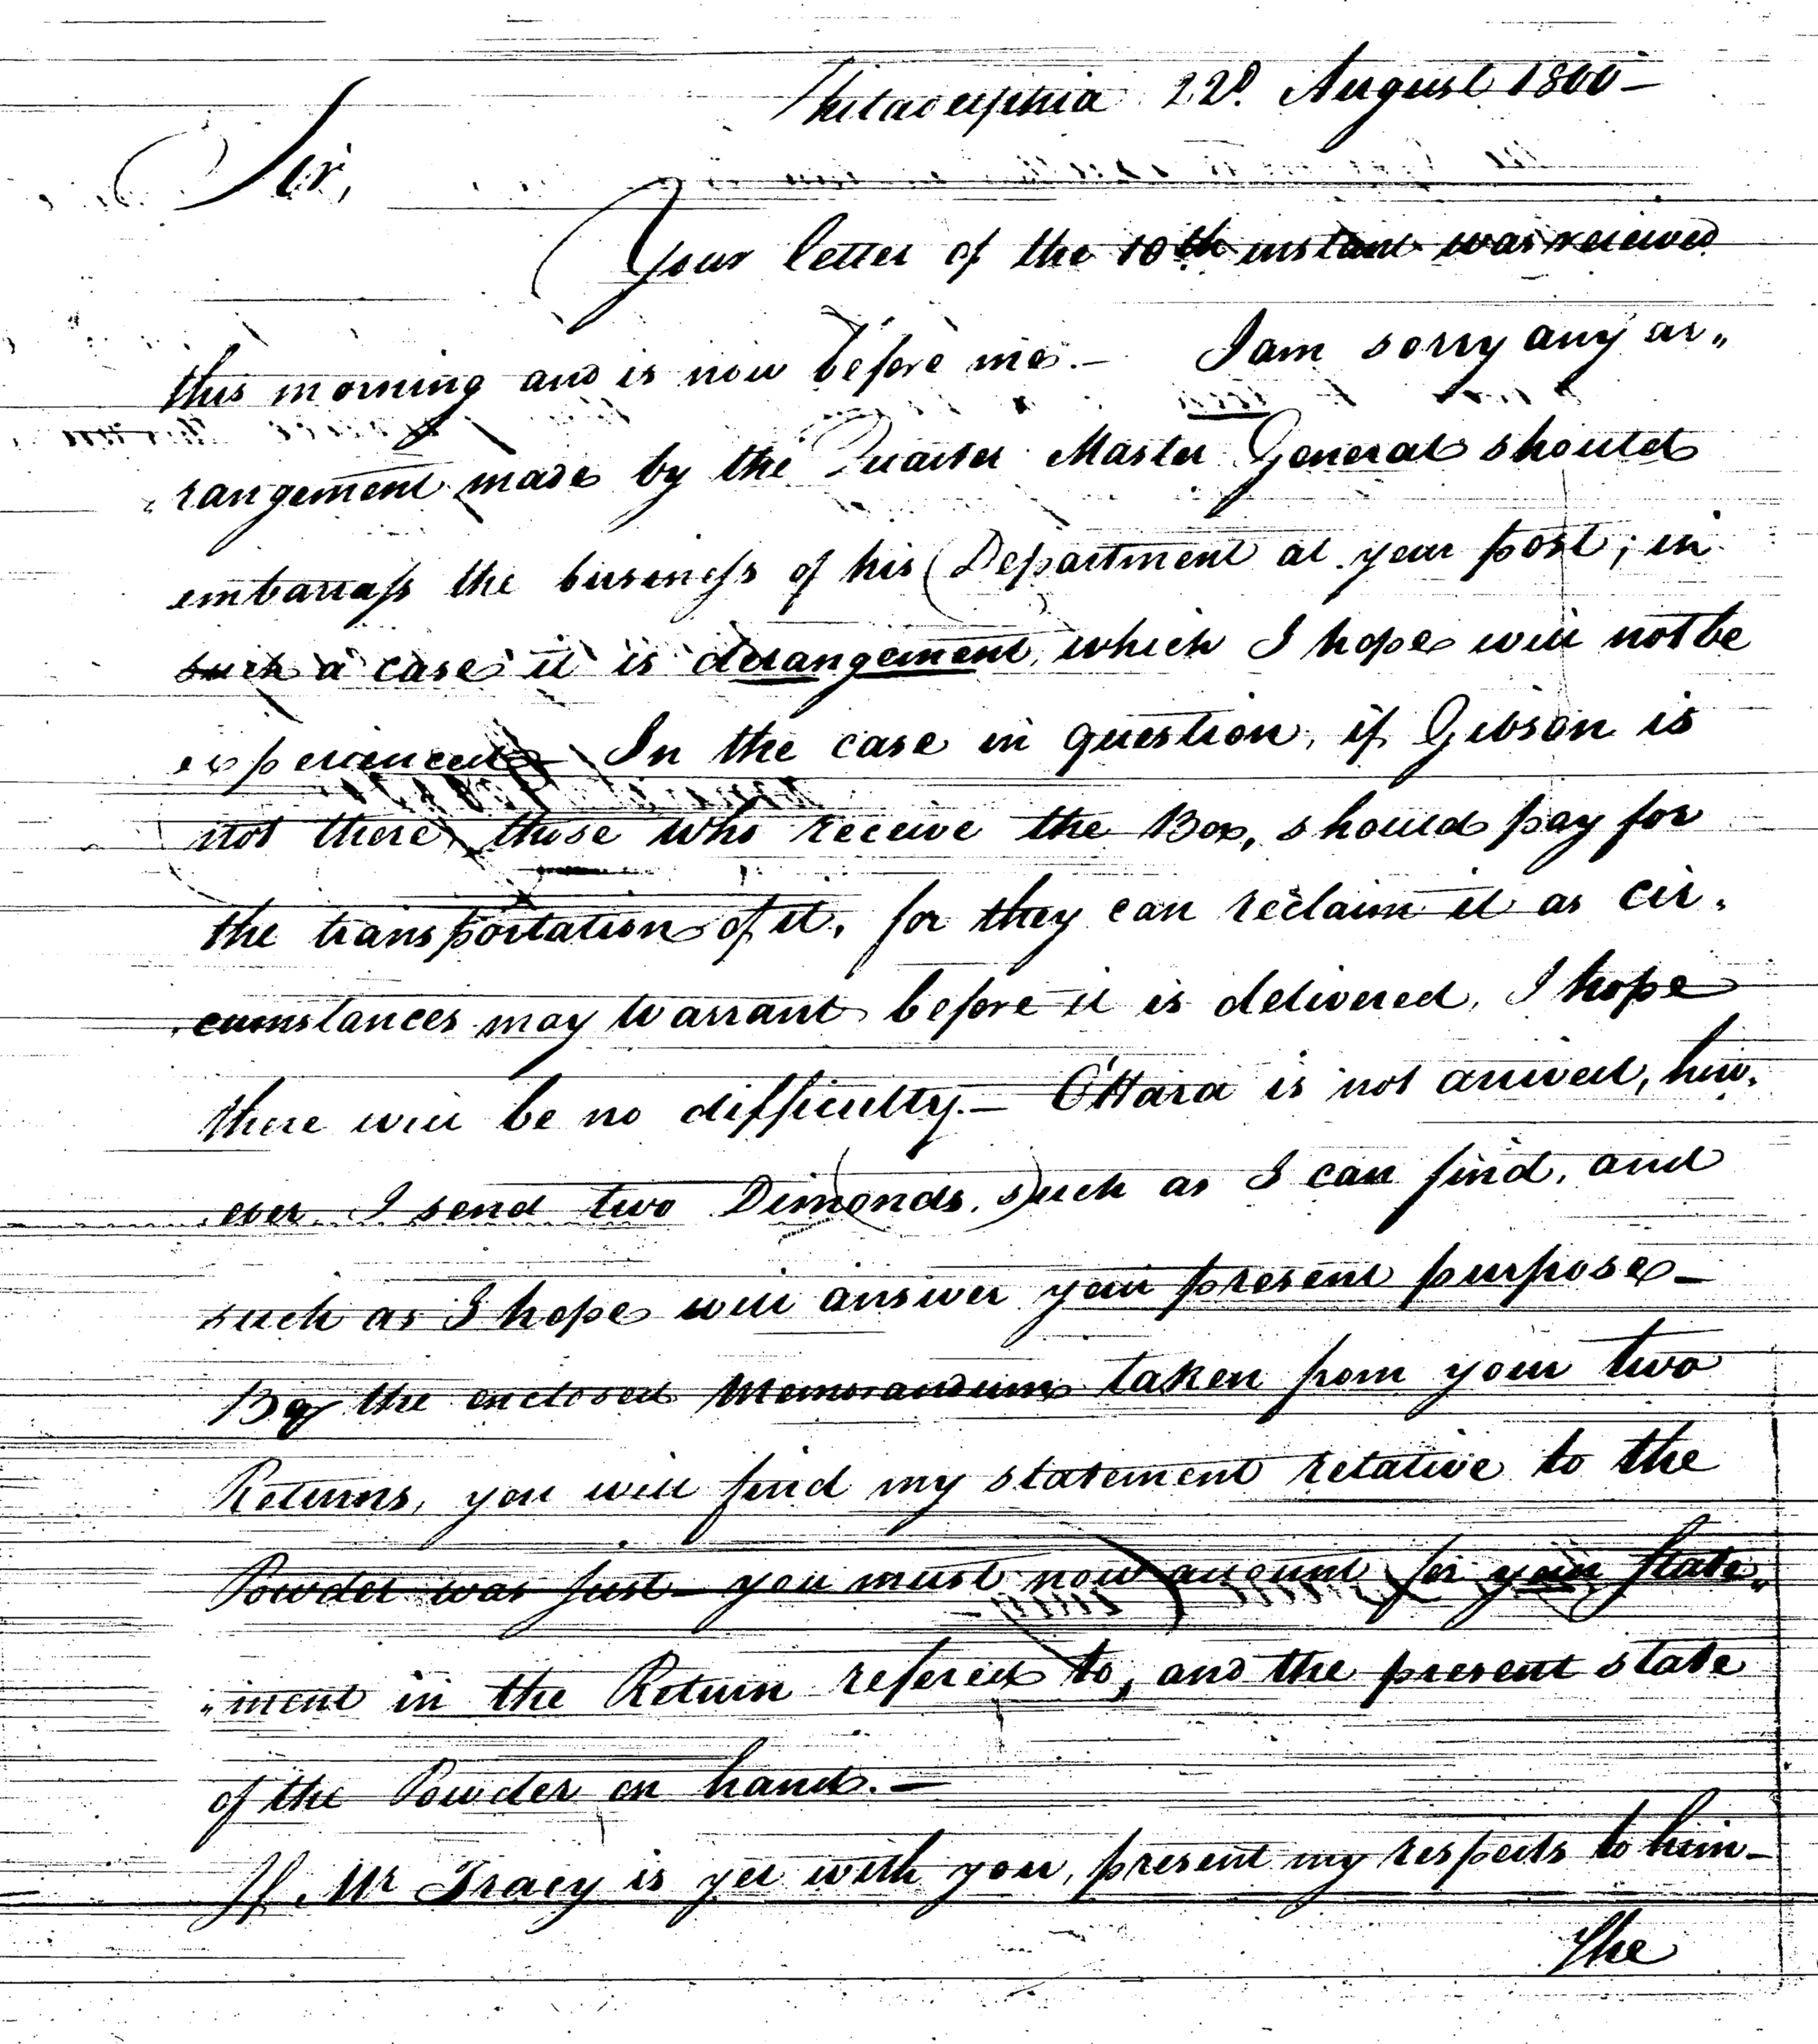 Philadelphia 22d. August 1800—
Sir,
Your letter of the 10th instant was received
this morning and is now before me.— I am sorry any ar„
rangement made by the Quarter Master General should
embarrass the business of his Department at your post; in
such a case it is derangement, which I hope will not be
experienced— In the case in question, if Gibson is
not there, those who receive the Box, should pay for
the transportation of it, for they can reclaim it as cir„
cumstances may warrant before it is delivered, I hope
there will be no difficulty.— O'Hara is not arrived, how„
ever I send two Dimonds, such as I can find, and
such as I hope will answer your present purpose—
By the enclosed Memorandum taken from your two
Returns, you will find my statement relative to the
Powder was just— you must now account for your state„
„ment in the Return refered to, and the present state
of the Powder on hand.—
If Mr Tracy is yet with you, present my respects to him—
The